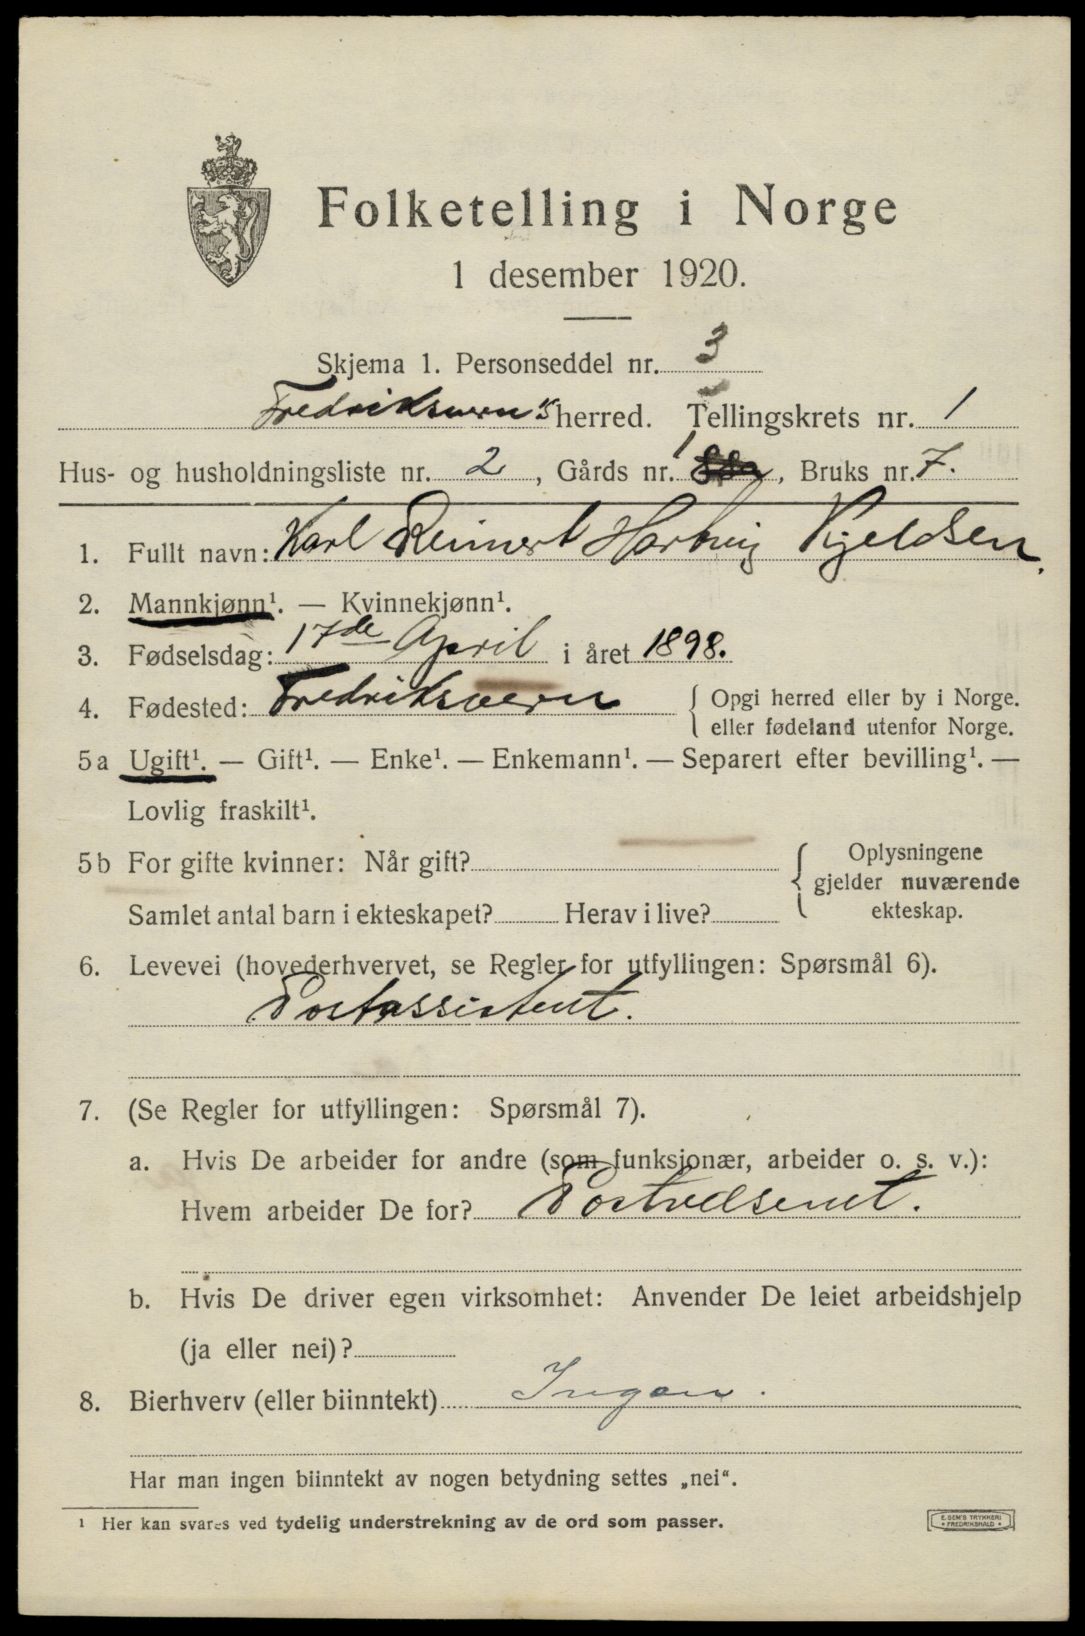 Folketelling i Norge
1 desember 1920.
Skjema 1. Personseddel nr. 3
Fredriksværns herred. Tellingskrets nr. 1
Hus- og husholdningsliste nr. 2, Gårds nr. 1, Bruks nr. 7.
1. Fullt navn: Karl Reinert Hartvig Kjeldsen.
2. Mannkjønn¹. — Kvinnekjønn¹.
3. Fødselsdag: 17de April i året 1898.
4. Fødested: Fredriksværn { Opgi herred eller by i Norge.
eller fødeland utenfor Norge.
5a Ugift¹. — Gift¹. — Enke¹. — Enkemann¹. — Separert efter bevilling¹. —
Lovlig fraskilt¹.
5b For gifte kvinner: Når gift? { Oplysningene
gjelder nuværende
Samlet antal barn i ekteskapet? Herav i live? ekteskap.
6. Levevei (hovederhvervet, se Regler for utfyllingen: Spørsmål 6).
Postassistent.
7. (Se Regler for utfyllingen: Spørsmål 7).
a. Hvis De arbeider for andre (som funksjonær, arbeider o. s. v.):
Hvem arbeider De for? Postvesenet.
b. Hvis De driver egen virksomhet: Anvender De leiet arbeidshjelp
(ja eller nei)?
8. Bierhverv (eller biinntekt) Ingen.
Har man ingen biinntekt av nogen betydning settes „nei“.
¹ Her kan svares ved tydelig understrekning av de ord som passer.
E. SEM'S TRYKKERI
• FREDRIKSHALD •